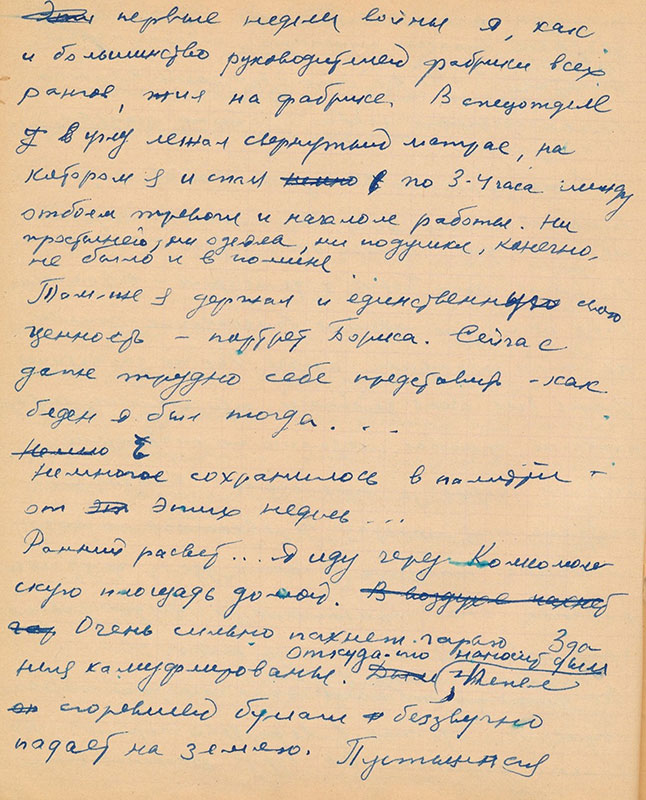 Эти первые недели войны я, как
и большинство руководителей фабрики всех
рангов, жил на фабрике. В спецотделе
в углу лежал свернутый матрас, на
котором я и спал по 3-4 часа между
отбоем тревоги и началом работы. Ни
простыней, ни одеяла, ни подушки, конечно,
не было и в помине
Там-же я держал и единственную свою
ценность – портрет Бориса. Сейчас
даже трудно себе представить – как
беден я был тогда. . .
Немно
Немногое сохранилось в памяти –
от этих недель ...
Ранний расвет... Я иду через Комсомоль
скую площадь домой. В воздухе пахнет
гар Очень сильно пахнет гарью Зда
откуда-то наносит дым
ния камуфлированы. Дым Пепел
сгоревшей бумаги безвучно
падает на землю. Пустынная